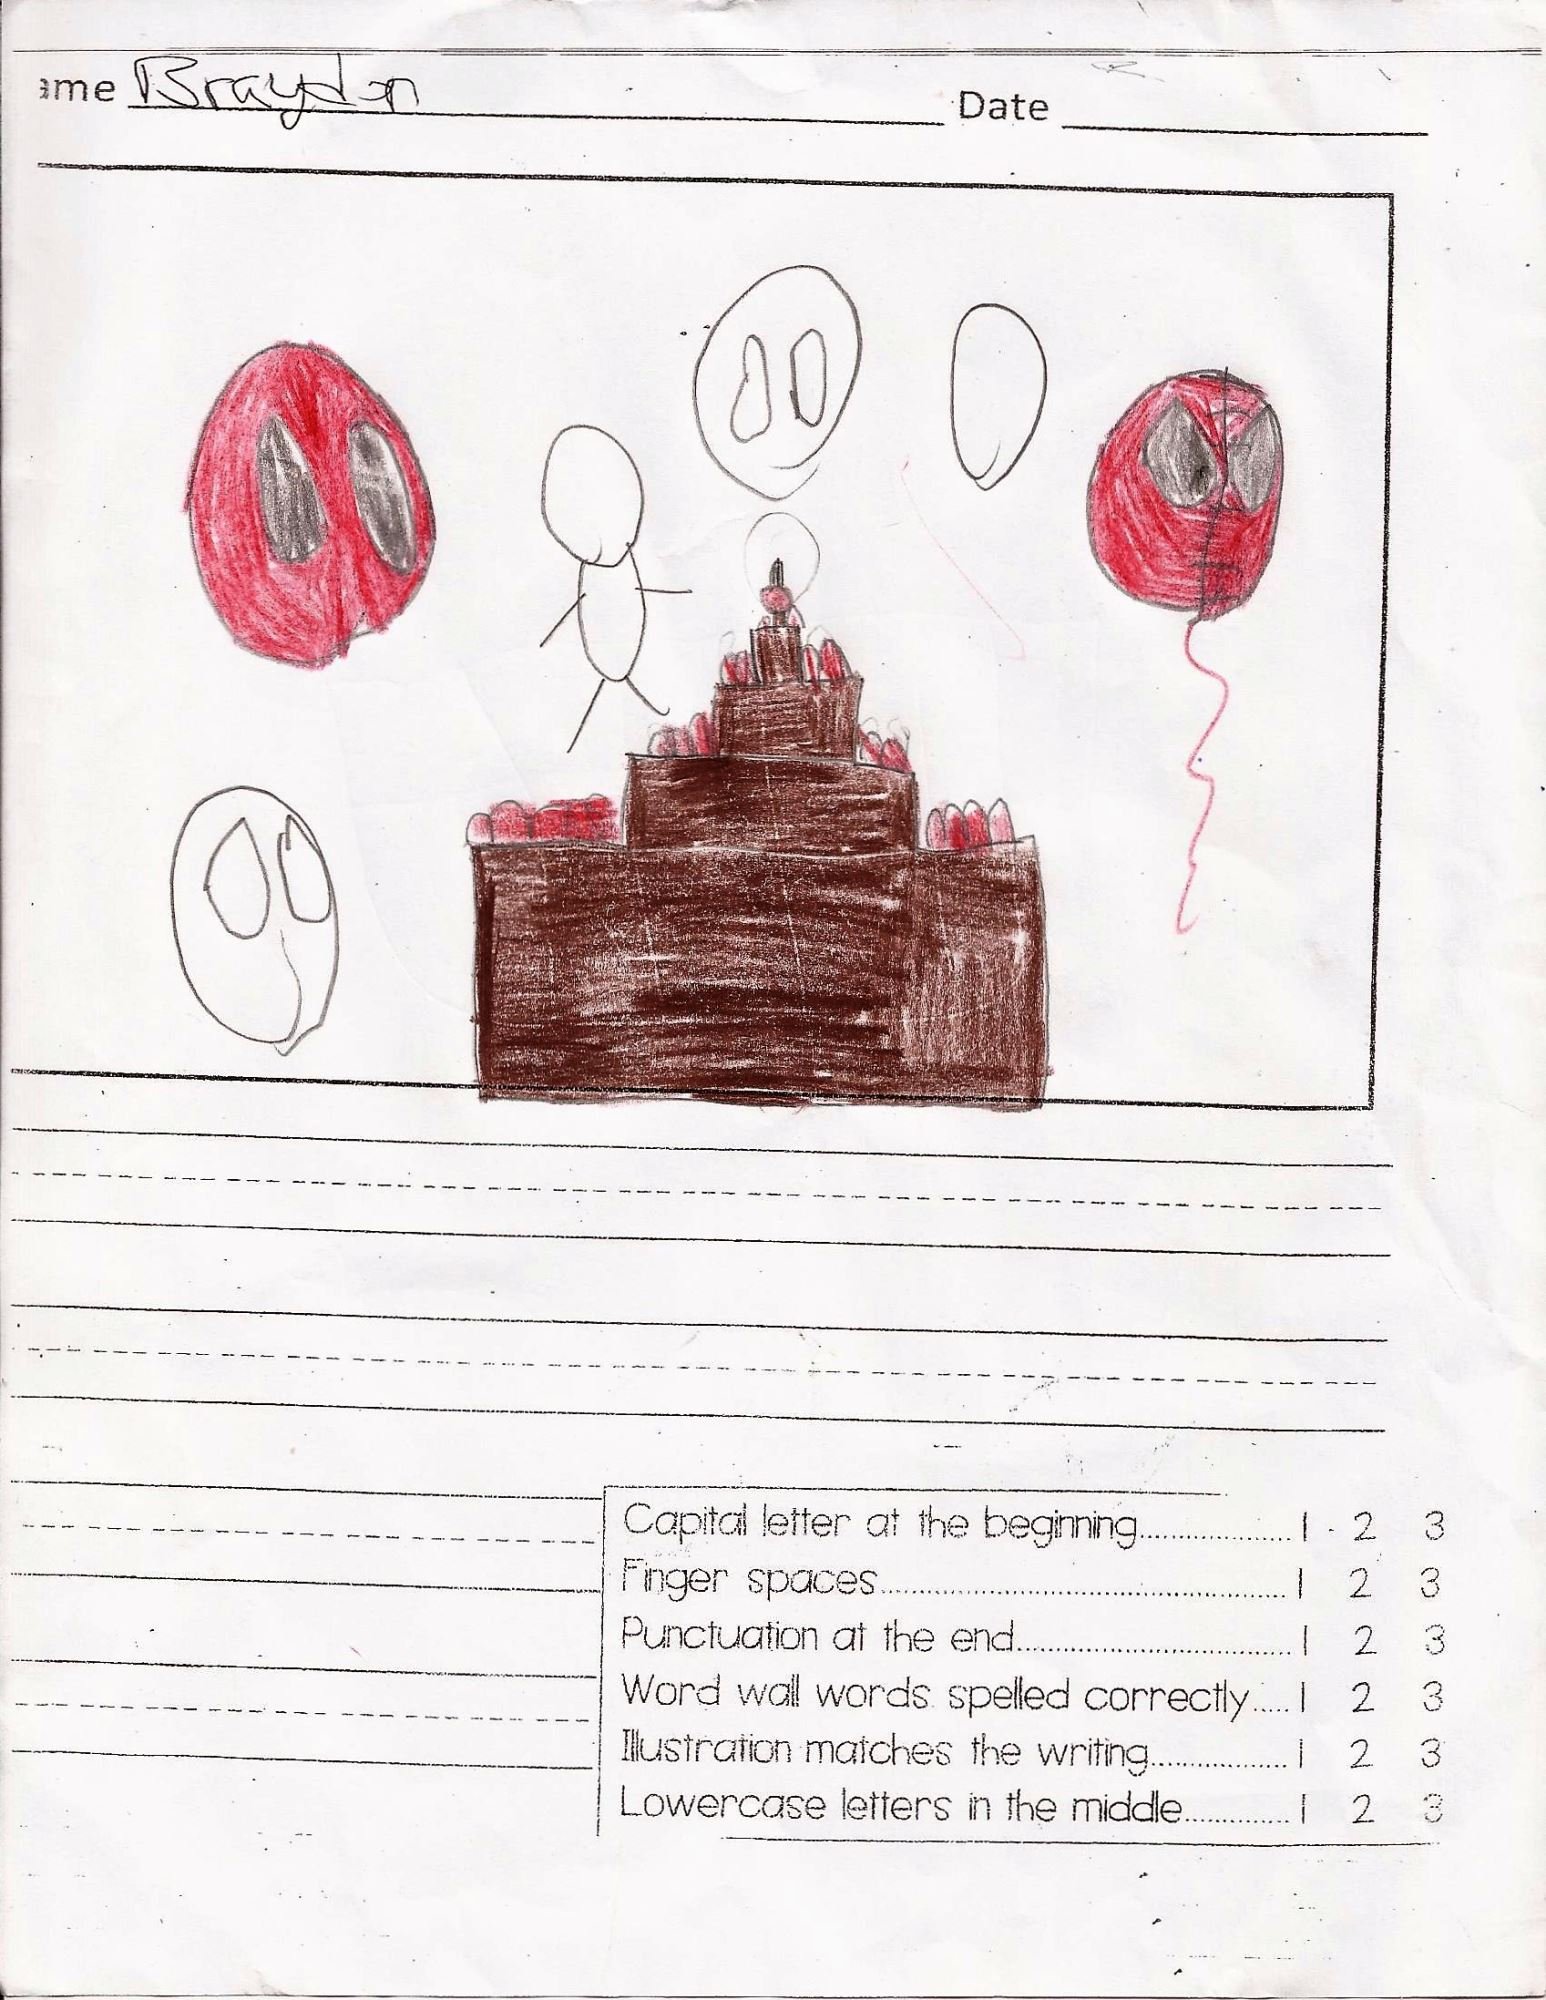 ame Braydon Date
Capital letter at the beginning.................... 1 2 3
Finger spaces.................................................. 1 2 3
Punctuation at the end.................................. 1 2 3
Word wall words spelled correctly..... 1 2 3
Illustration matches the writing................. 1 2 3
Lowercase letters in the middle............. 1 2 3